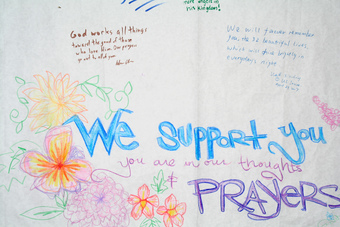 more angels in
his kingdom!
God works all things
toward the good of those
who love Him. Our prayers
go out to all of you
We will forever remember
you, the 32 beautiful lives,
which will shine brightly in
everyone's eyes
WE Support you
you are in our thoughts
&
PRAYERS